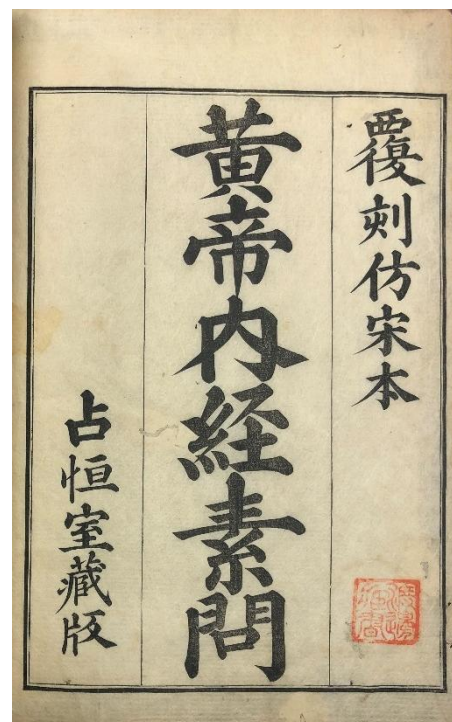 覆刻仿宋本
黄帝内経素問
占恒室藏版